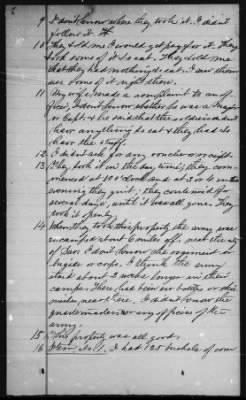 9 I don't know where they took it. I didn't
follow it.
10 They told me I would get pay for it. They
took some of it to eat. They told me
that they had nothing to eat. I saw them
use some of it right there.
11 My wife made a complaint to an of
ficer, I don't know whether he was a Major
or Capt. & he said that the soldiers didn't
have anything to eat & they had to
have the stuff.
12 I didn't ask for any voucher or receipt.
13 They took it in the day time, they com
menced at 10 o'clock and at 3 or 4 in the
evening they quit; they continued for
several days, until it was all gone. They
took it openly.
14 When they took this property the army was
encamped about 6 miles off, near the city
of Sav. I don't know the regiment or
brigade or corps. I think the army
staid about 3 weeks longer in their
camps. There had been no battle or skir
mishes near there. I didn't know the
quartermasters or any officers of the
army.
15 This property was all good.
16 Item No. 1. I had 125 bushels of corn